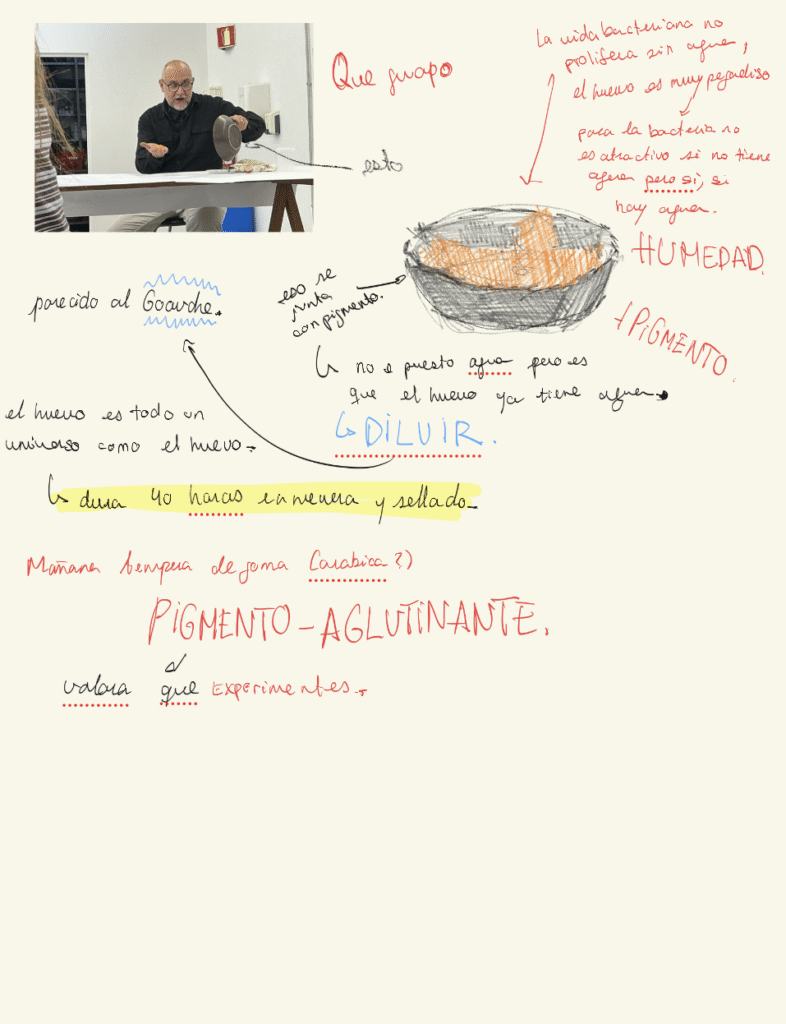 Que guapo
esto
La vida bacteriana no
prolifera sin agua,
el huevo es muy pegadiso
para la bacteria no
es atractivo si no tiene
agua pero si, si
hay agua.
HUMEDAD.
+ PIGMENTO.
parecido al Goauche.
eso se
junta
con pigmento.
no e puesto agua pero es
que el huevo ya tiene agua.
DILUIR.
el huevo es todo un
universo como el huevo.
dura 40 horas en nevera y sellado.
Mañana tempera de goma (arabica?)
PIGMENTO - AGLUTINANTE.
valora que EXPERIMENTES.